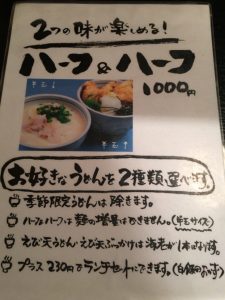 2つの味が楽しめる!
ハーフ&ハーフ
1000円
半玉↑
半玉↑
お好きなうどんを2種類、選べます。
季節限定うどんは除きます。
ハーフ&ハーフは麺の増量はできません。(半玉サイズ)
えび天うどん・えび天ぶっかけは海老が1本になります。
プラス230円でランチセットにできます。